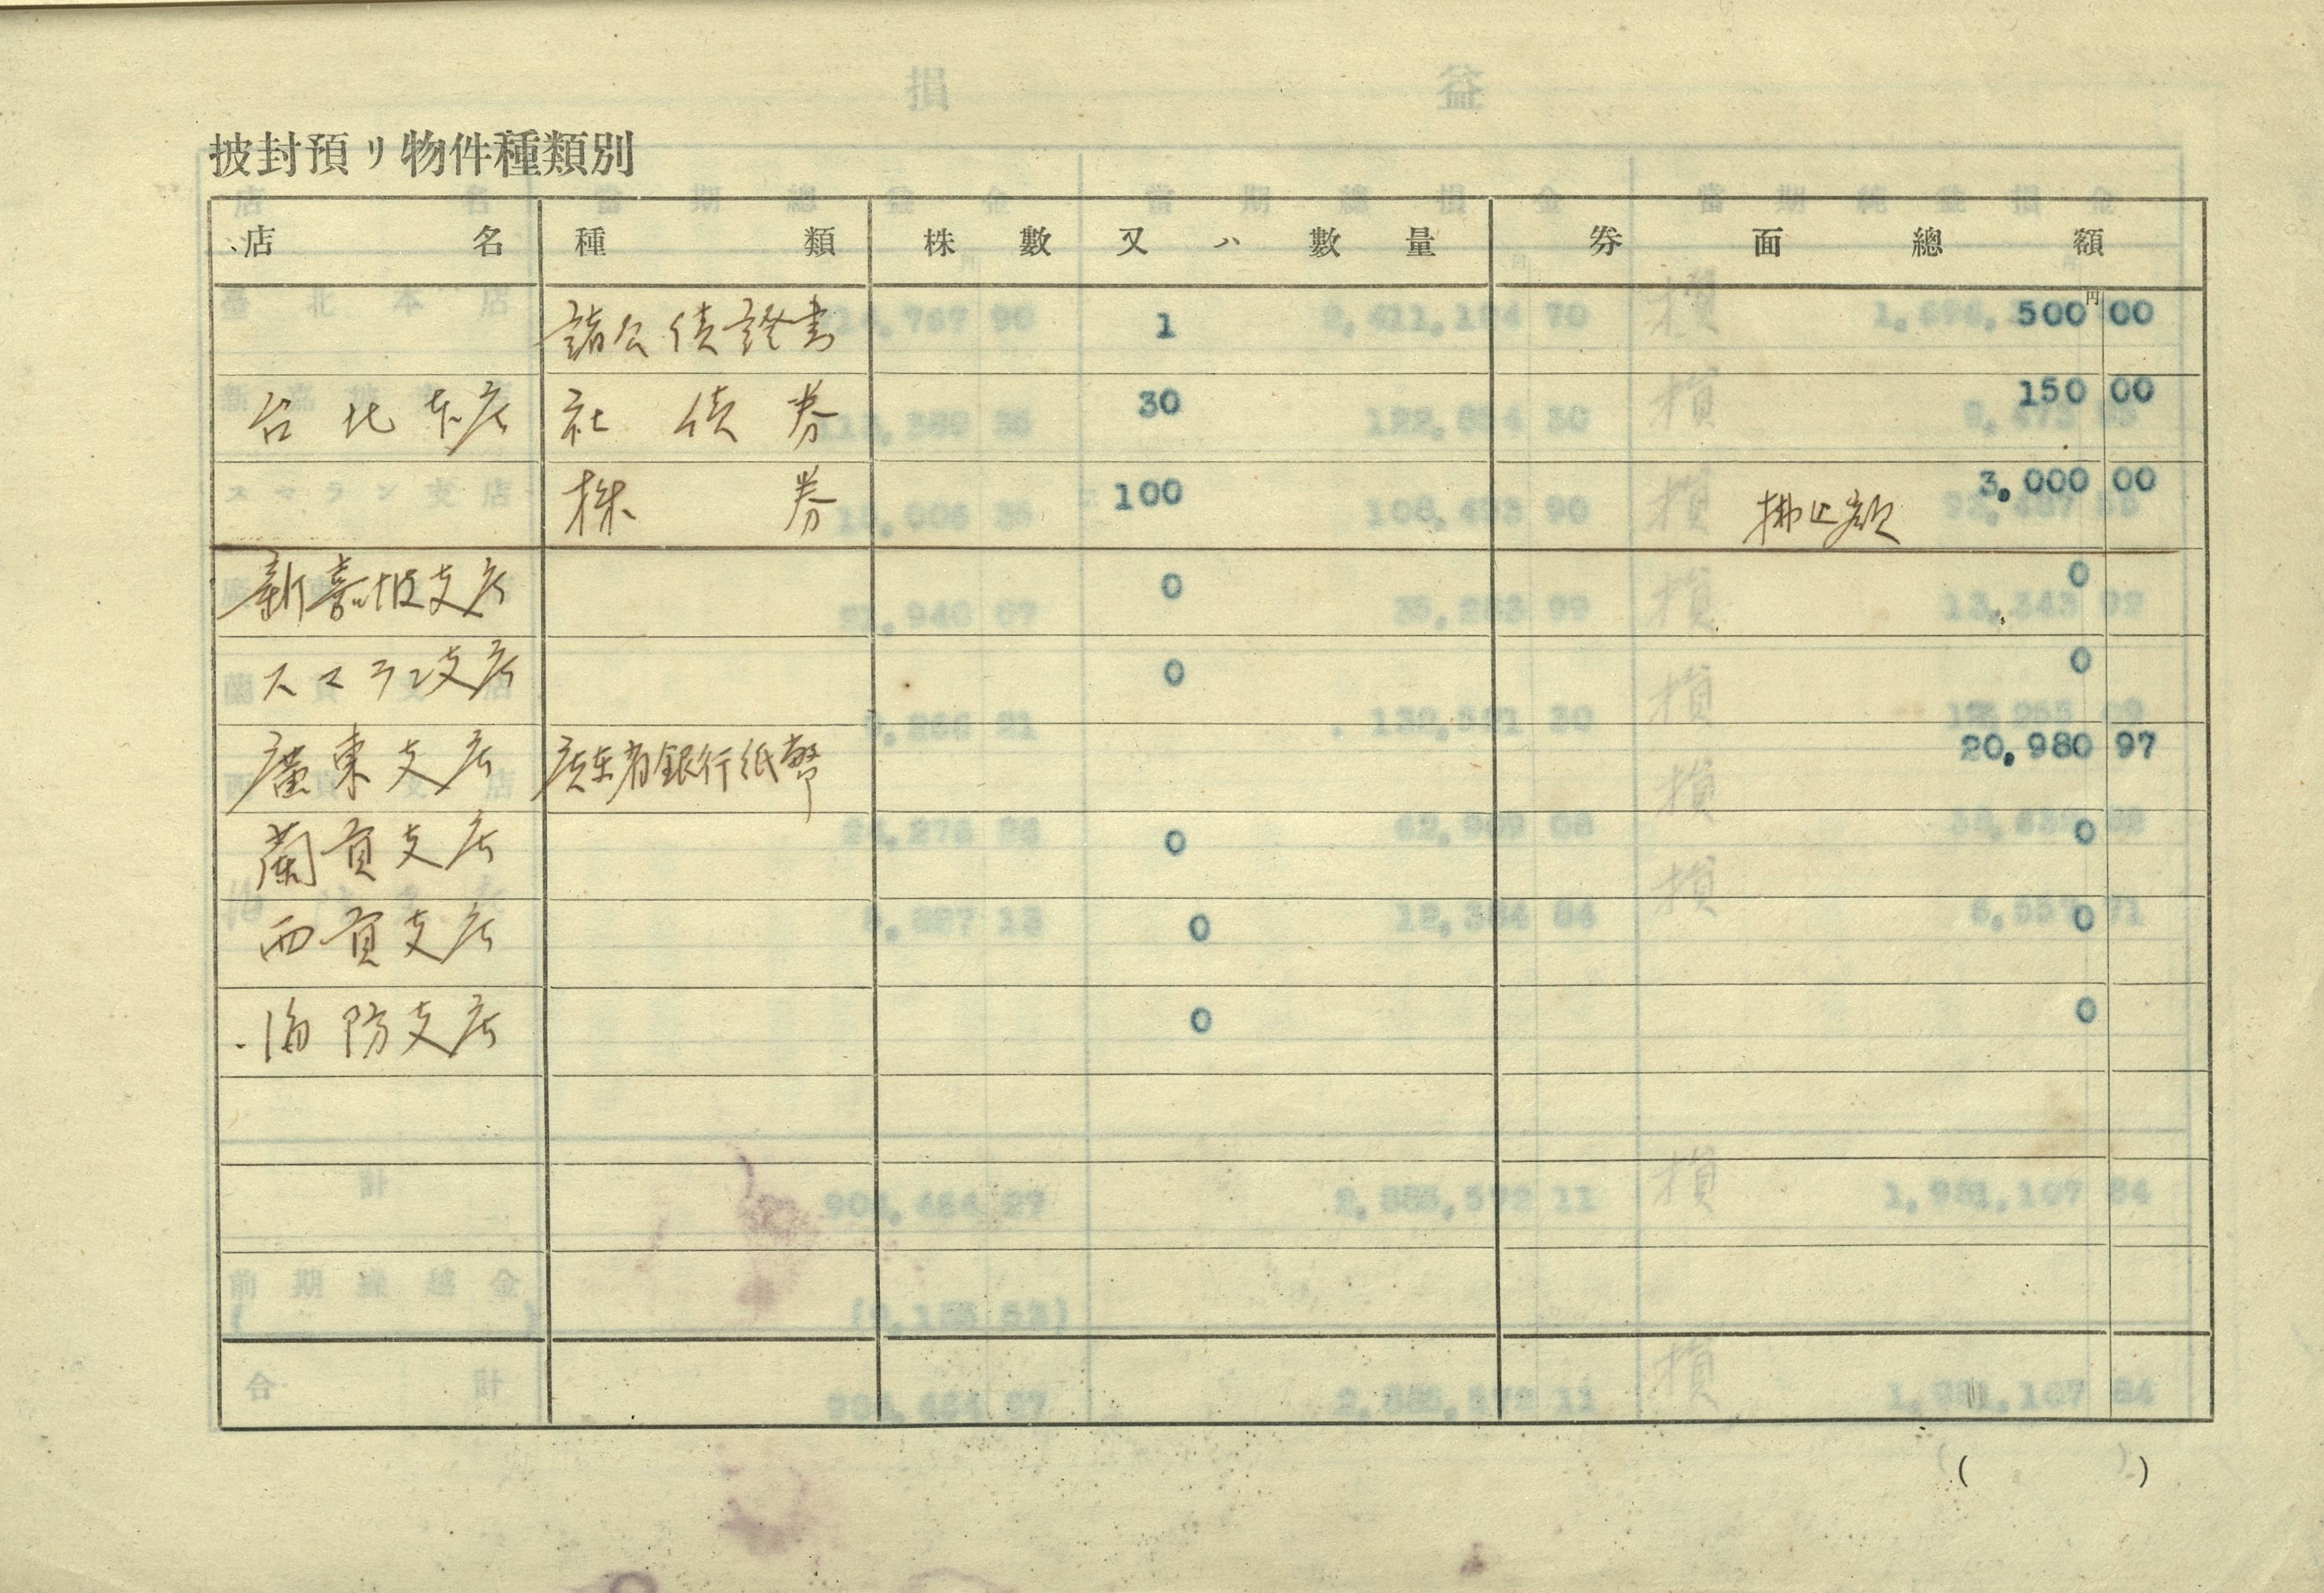 披封預リ物件種類別
店名 種類 株數又ハ數量 券面總額
諸公債證書 1 500円00
台北本店 社債券 30 150 00
株券 100 拂込額 3,000 00
新嘉坡支店 0 0
スマラン支店 0 0
廣東支店 广东省銀行紙幣 20,980 97
蘭貢支店 0 0
西貢支店 0 0
海防支店 0 0
( )